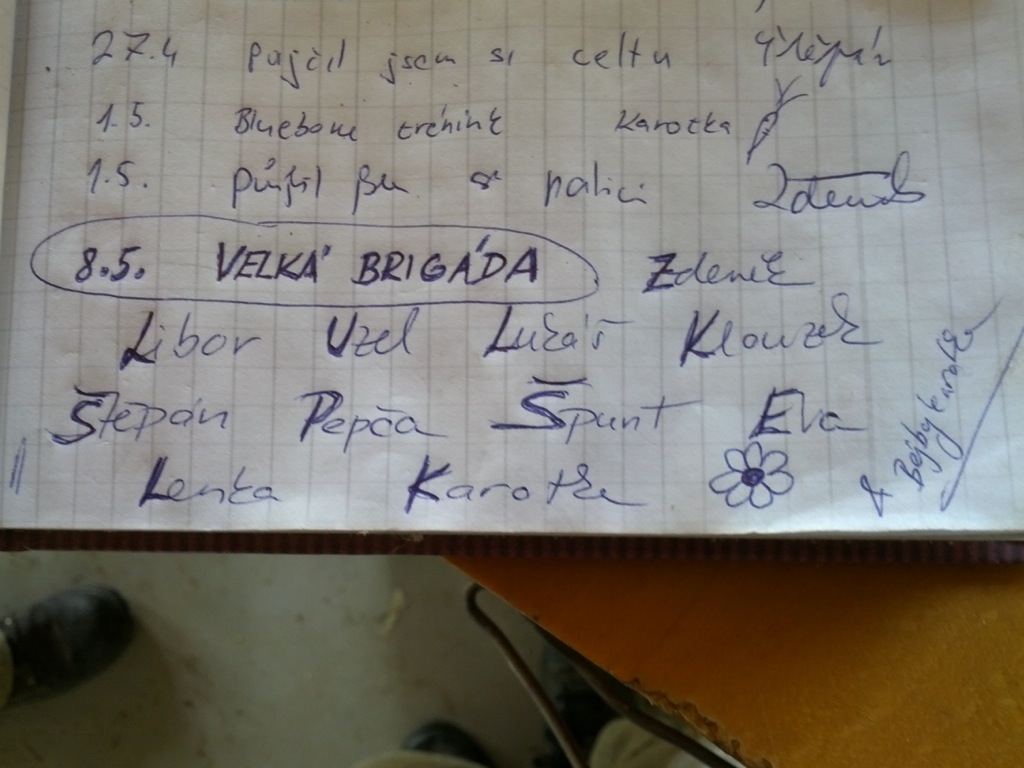 27.4 pujčil jsem si celtu Štěpán
1.5. Bluebone trénink Karotka
1.5. půjčil jsem si palici Zdeněk
8.5. VELKÁ BRIGÁDA Zdeněk
Libor Uzel Lukáš Klouzek
Štěpán Pepča Špunt Eva
Lenka Karotka
& Bejby karotka